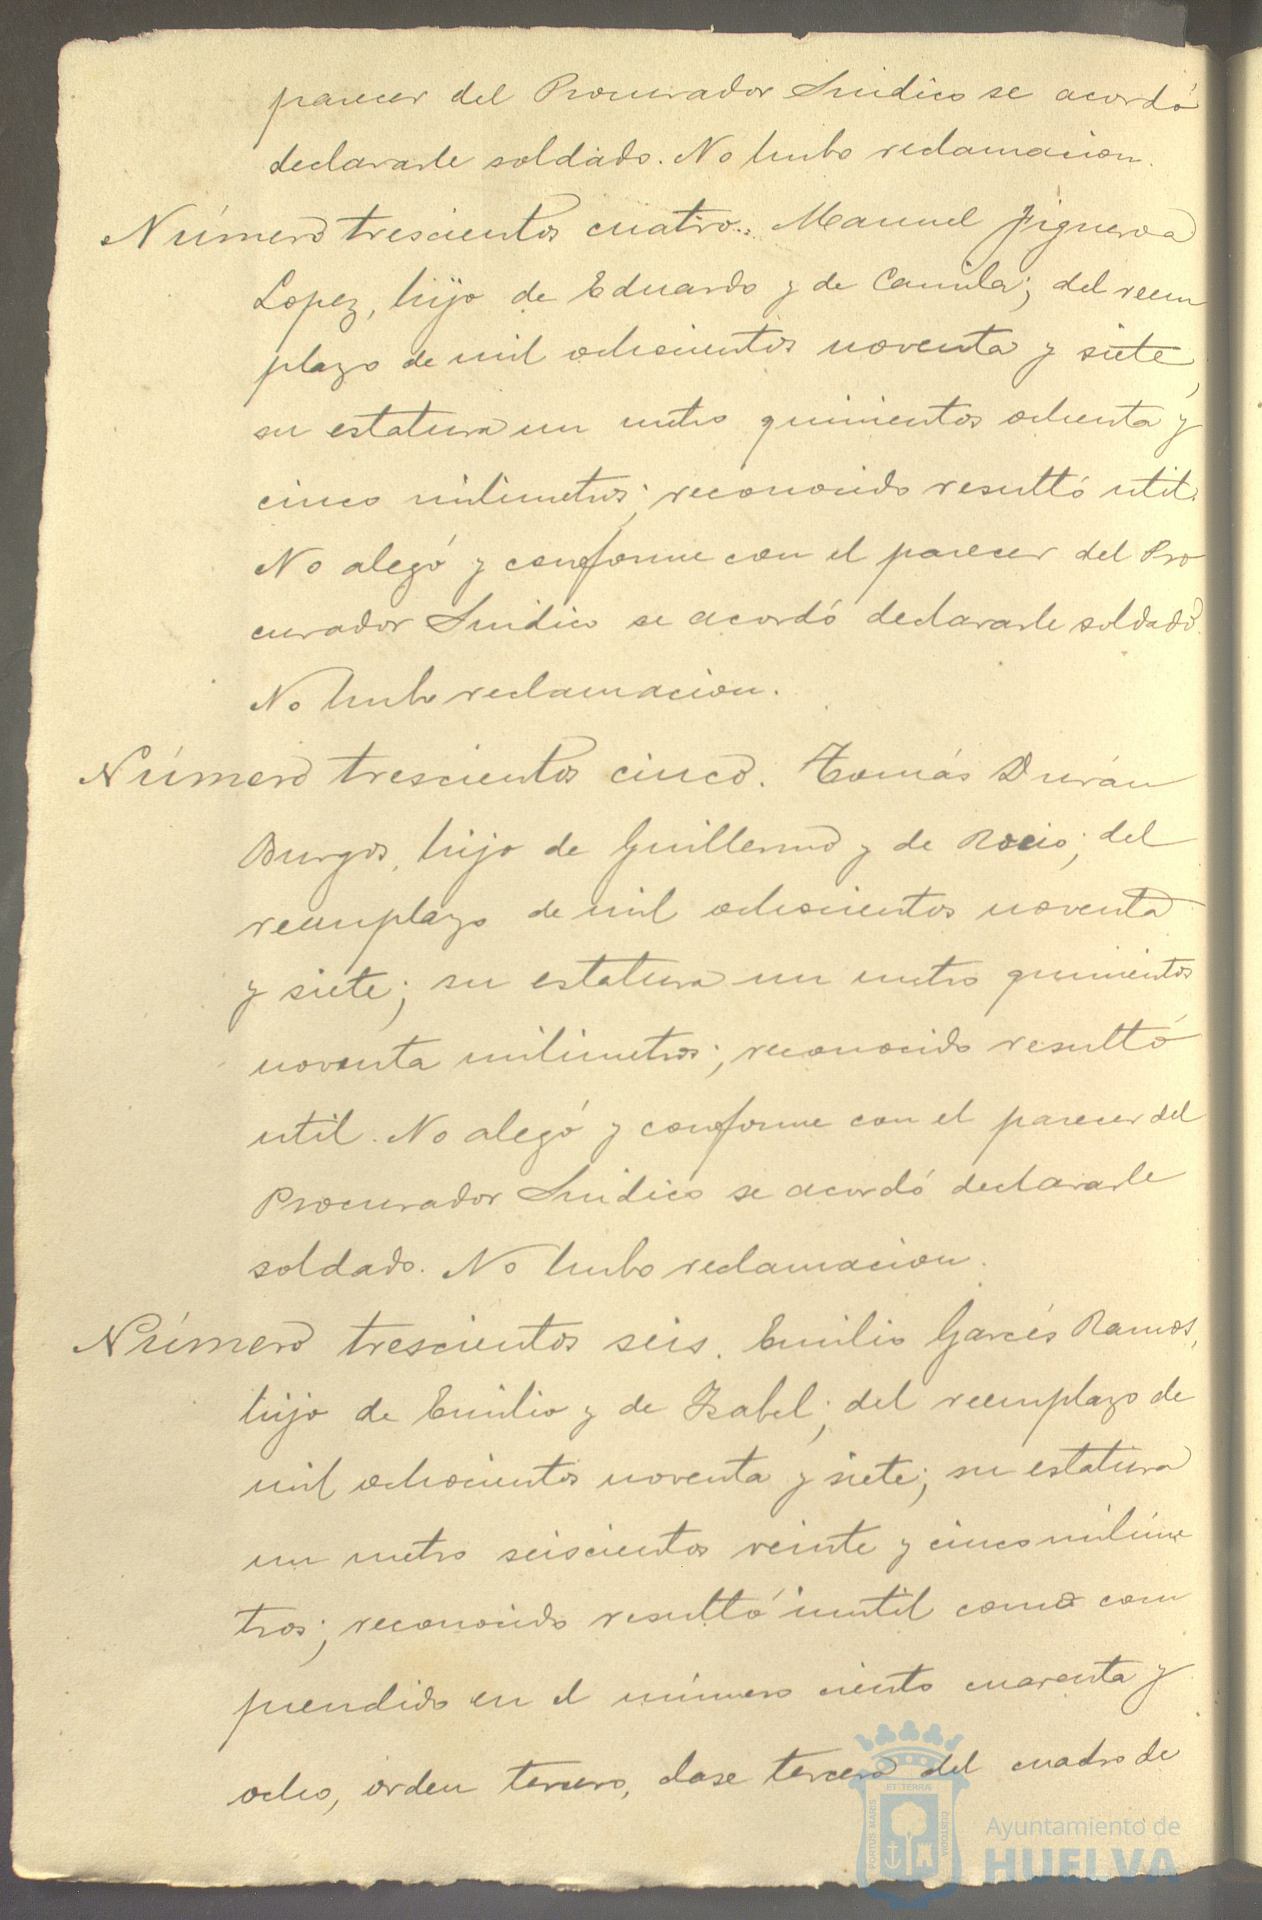 parecer del Procurador Sindico se acordó
declararle soldado. No hubo reclamacion.
Número trescientos cuatro.. Manuel Figueroa
Lopez, hijo de Eduardo y de Camila; del reem
plazo de mil ochocientos noventa y siete,
su estatura un metro quinientos ochenta y
cinco milimetros; reconocido resultó util.
No alegó y conforme con el parecer del Pro
curador Sindico se acordó declararle soldado.
No hubo reclamacion.
Número trescientos cinco. Tomás Durán
Burgos, hijo de Guillermo y de Rocio; del
reemplazo de mil ochocientos noventa
y siete; su estatura un metro quinientos
noventa milimetros; reconocido resultó
util. No alegó y conforme con el parecer del
Procurador Sindico se acordó declararle
soldado. No hubo reclamacion.
Número trescientos seis. Emilio Garcés Ramos,
hijo de Emilio y de Isabel; del reemplazo de
mil ochocientos noventa y siete; su estatura
un metro seiscientos veinte y cinco milíme
tros; reconocido resultó inutil como com
prendido en el número ciento cuarenta y
ocho, orden tercero, clase tercera del cuadro de
ET TERRÆ
PORTUS MARIS
CUSTODIA
Ayuntamiento de
HUELVA